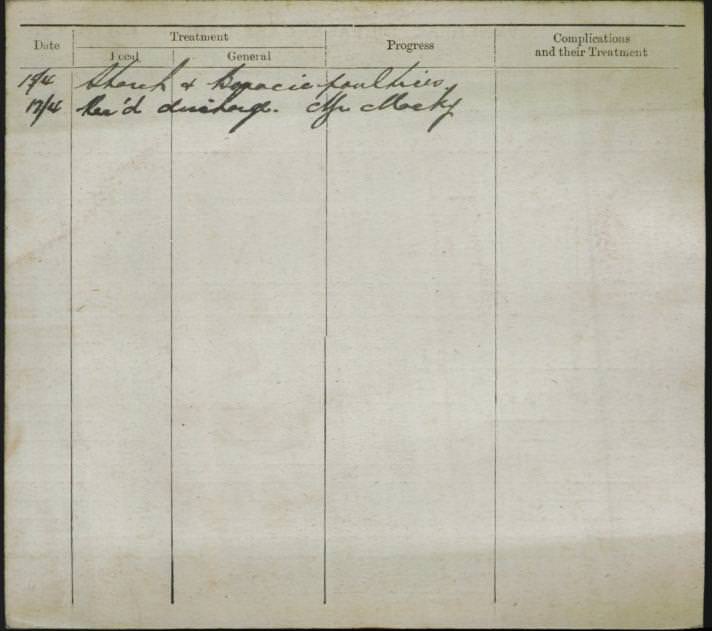 Treatment
Date Progress Complications
and their Treatment
Local General
15/4 Starch & Boracic poultices
17/4 Rec'd discharge.